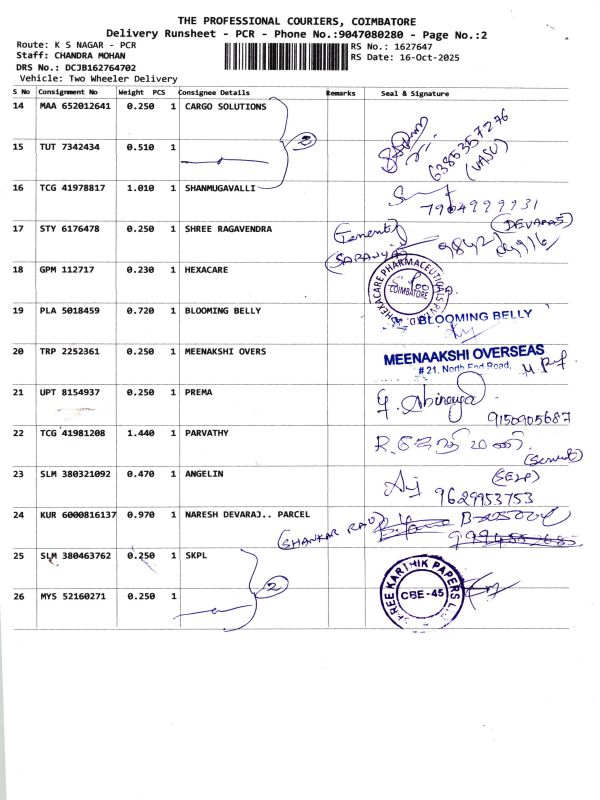 THE PROFESSIONAL COURIERS, COIMBATORE
Delivery Runsheet - PCR - Phone No.:9047080280 - Page No.:2
Route: K S NAGAR - PCR
RS No.: 1627647
Staff: CHANDRA MOHAN
RS Date: 16-Oct-2025
DRS No.: DCJB162764702
Vehicle: Two Wheeler Delivery
S No Consignment No Weight PCS Consignee Details Remarks Seal & Signature
14 MAA 652012641 0.250 1 CARGO SOLUTIONS
6385357276
(VASU)
15 TUT 7342434 0.510 1
16 TCG 41978817 1.010 1 SHANMUGAVALLI
7904999931
17 STY 6176478 0.250 1 SHREE RAGAVENDRA
18 GPM 112717 0.230 1 HEXACARE
HEXACARE PHARMACEUTICALS
COIMBATORE
19 PLA 5018459 0.720 1 BLOOMING BELLY
BLOOMING BELLY
20 TRP 2252361 0.250 1 MEENAKSHI OVERS
MEENAAKSHI OVERSEAS
# 21, North End Road,
21 UPT 8154937 0.250 1 PREMA
9150905687
22 TCG 41981208 1.440 1 PARVATHY
23 SLM 380321092 0.470 1 ANGELIN
(SELF)
9629953753
24 KUR 6000816137 0.970 1 NARESH DEVARAJ.. PARCEL
(SHANKAR RAO)
25 SLM 380463762 0.250 1 SKPL
2
REE KARTHIK PAPERS
CBE-45
26 MYS 52160271 0.250 1